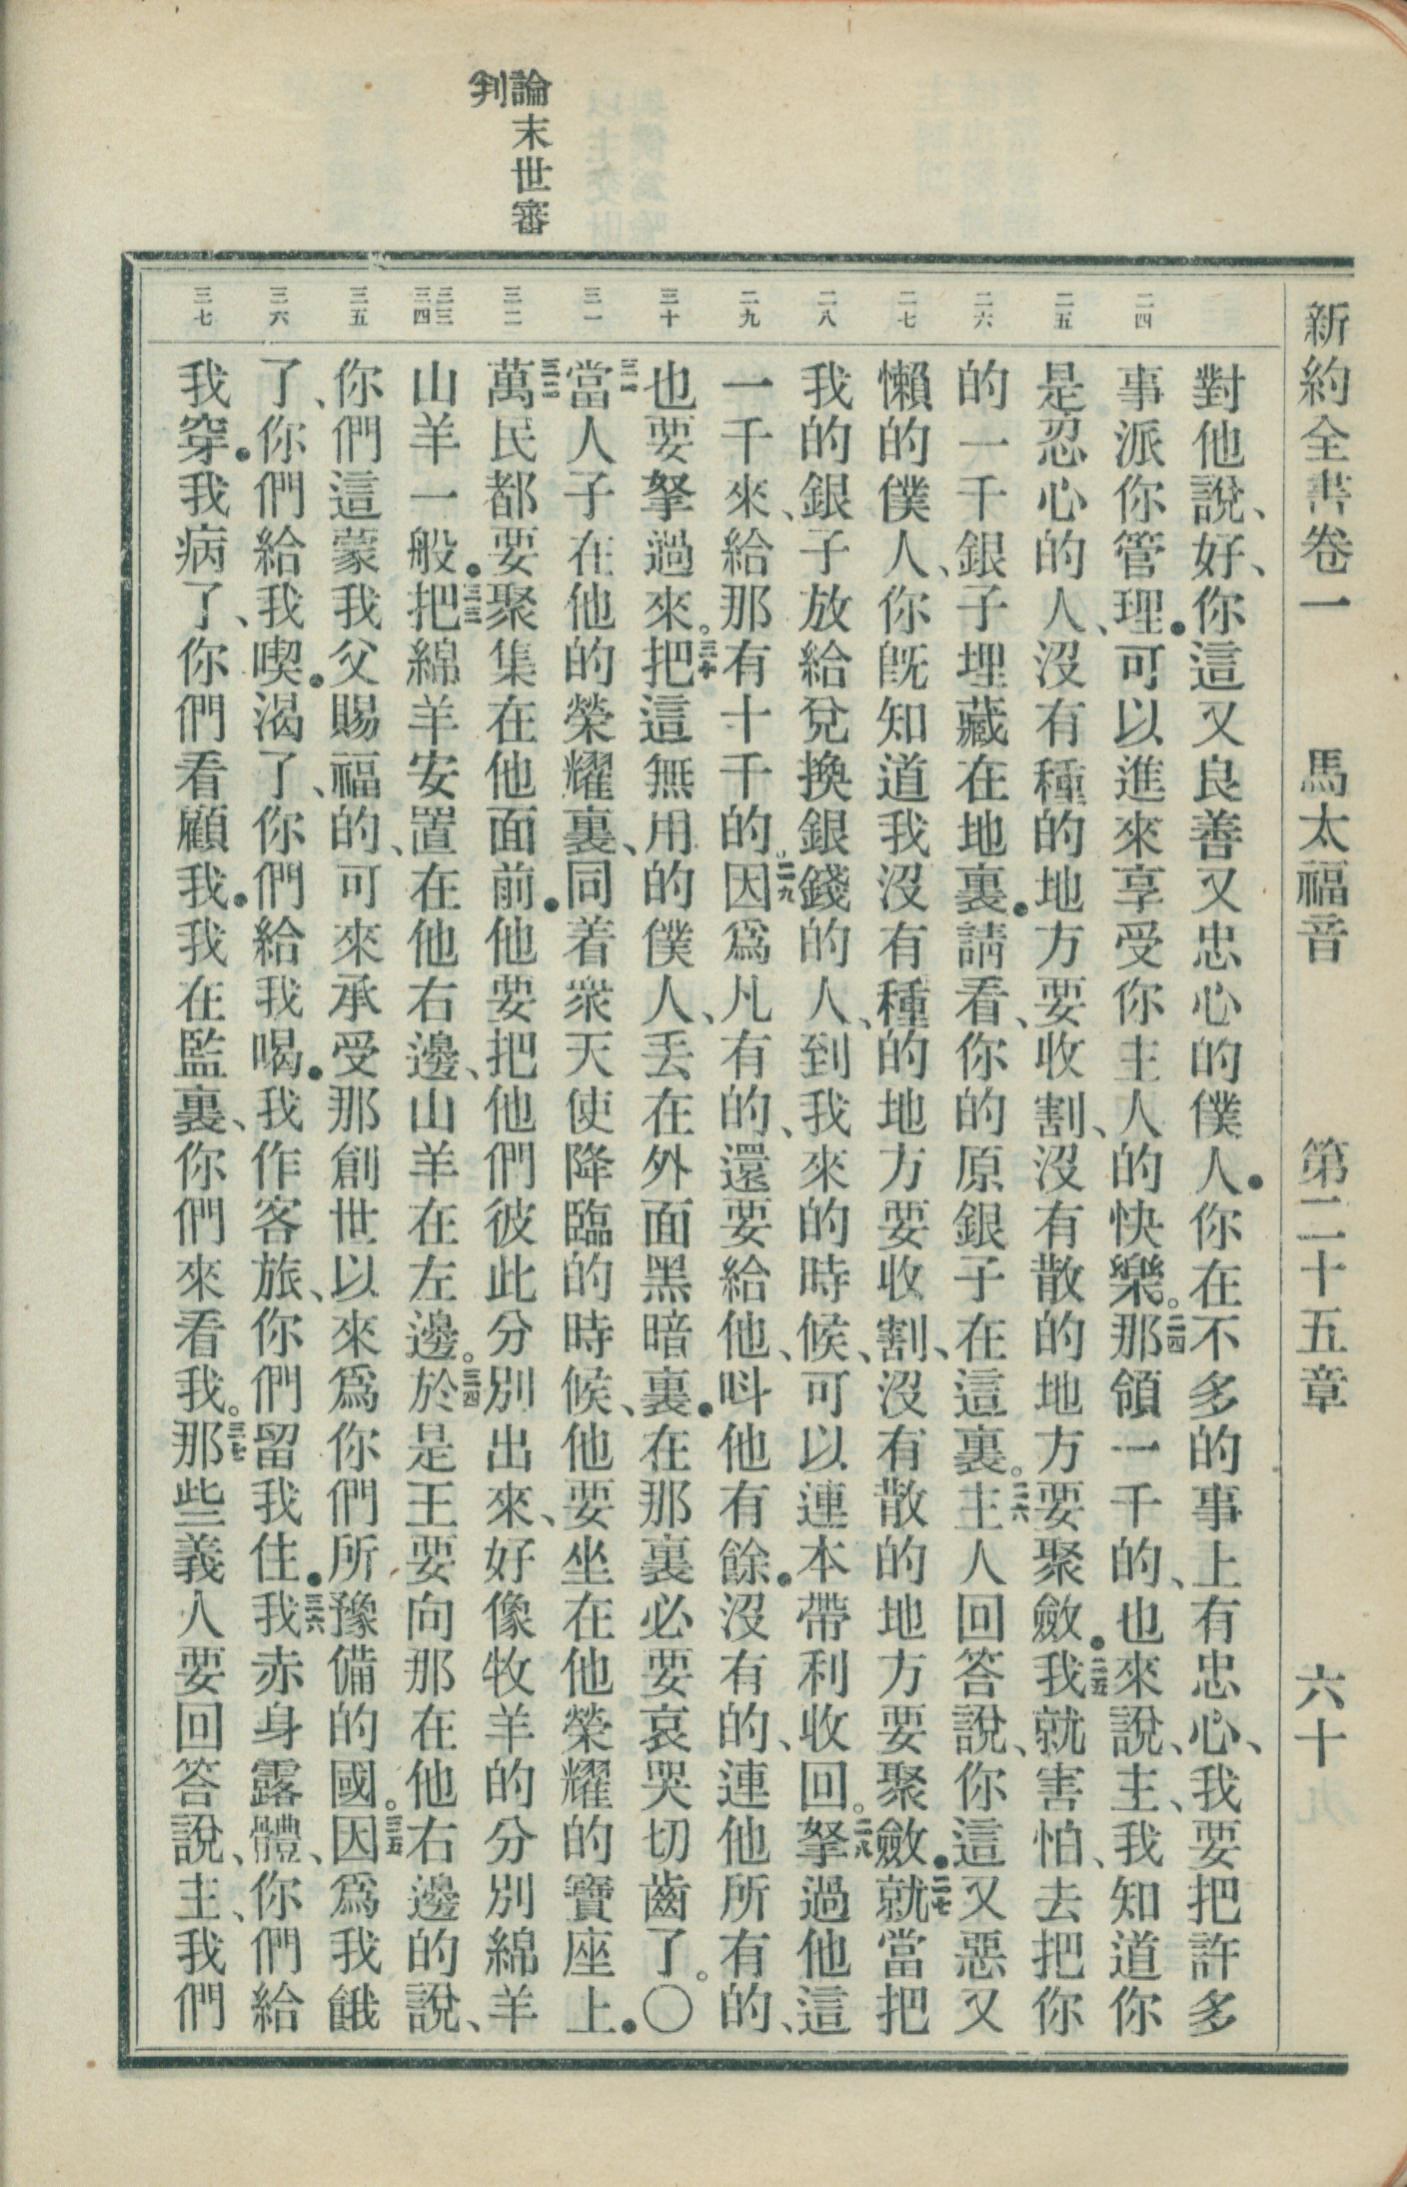 新約全書卷一　馬太福音　第二十五章　六十
論末世審
判
二四
二五
二六
二七
二八
二九
三十
三一
三二
三三
三四
三五
三六
三七
對他說、好、你這又良善又忠心的僕人．你在不多的事上有忠心、我要把許多
事派你管理．可以進來享受你主人的快樂。二四那領一千的、也來說、主、我知道你
是忍心的人、沒有種的地方要收割、沒有散的地方要聚斂．二五我就害怕、去把你
的一千銀子埋藏在地裏．請看、你的原銀子在這裏。二六主人回答說、你這又惡又
懶的僕人、你旣知道我沒有種的地方要收割、沒有散的地方要聚斂．二七就當把
我的銀子放給兌換銀錢的人、到我來的時候、可以連本帶利收回。二八拏過他這
一千來、給那有十千的。二九因爲凡有的、還要給他、呌他有餘．沒有的、連他所有的、
也要拏過來。三十把這無用的僕人、丟在外面黑暗裏．在那裏必要哀哭切齒了。〇
三一當人子在他的榮耀裏、同着衆天使降臨的時候、他要坐在他榮耀的寶座上．
三二萬民都要聚集在他面前．他要把他們彼此分別出來、好像牧羊的分別綿羊
山羊一般．三三把綿羊安置在他右邊、山羊在左邊。三四於是王要向那在他右邊的說、
你們這蒙我父賜福的、可來承受那創世以來爲你們所豫備的國。三五因爲我餓
了、你們給我喫．渴了、你們給我喝．我作客旅、你們留我住．三六我赤身露體、你們給
我穿．我病了、你們看顧我．我在監裏、你們來看我。三七那些義人要回答說、主、我們